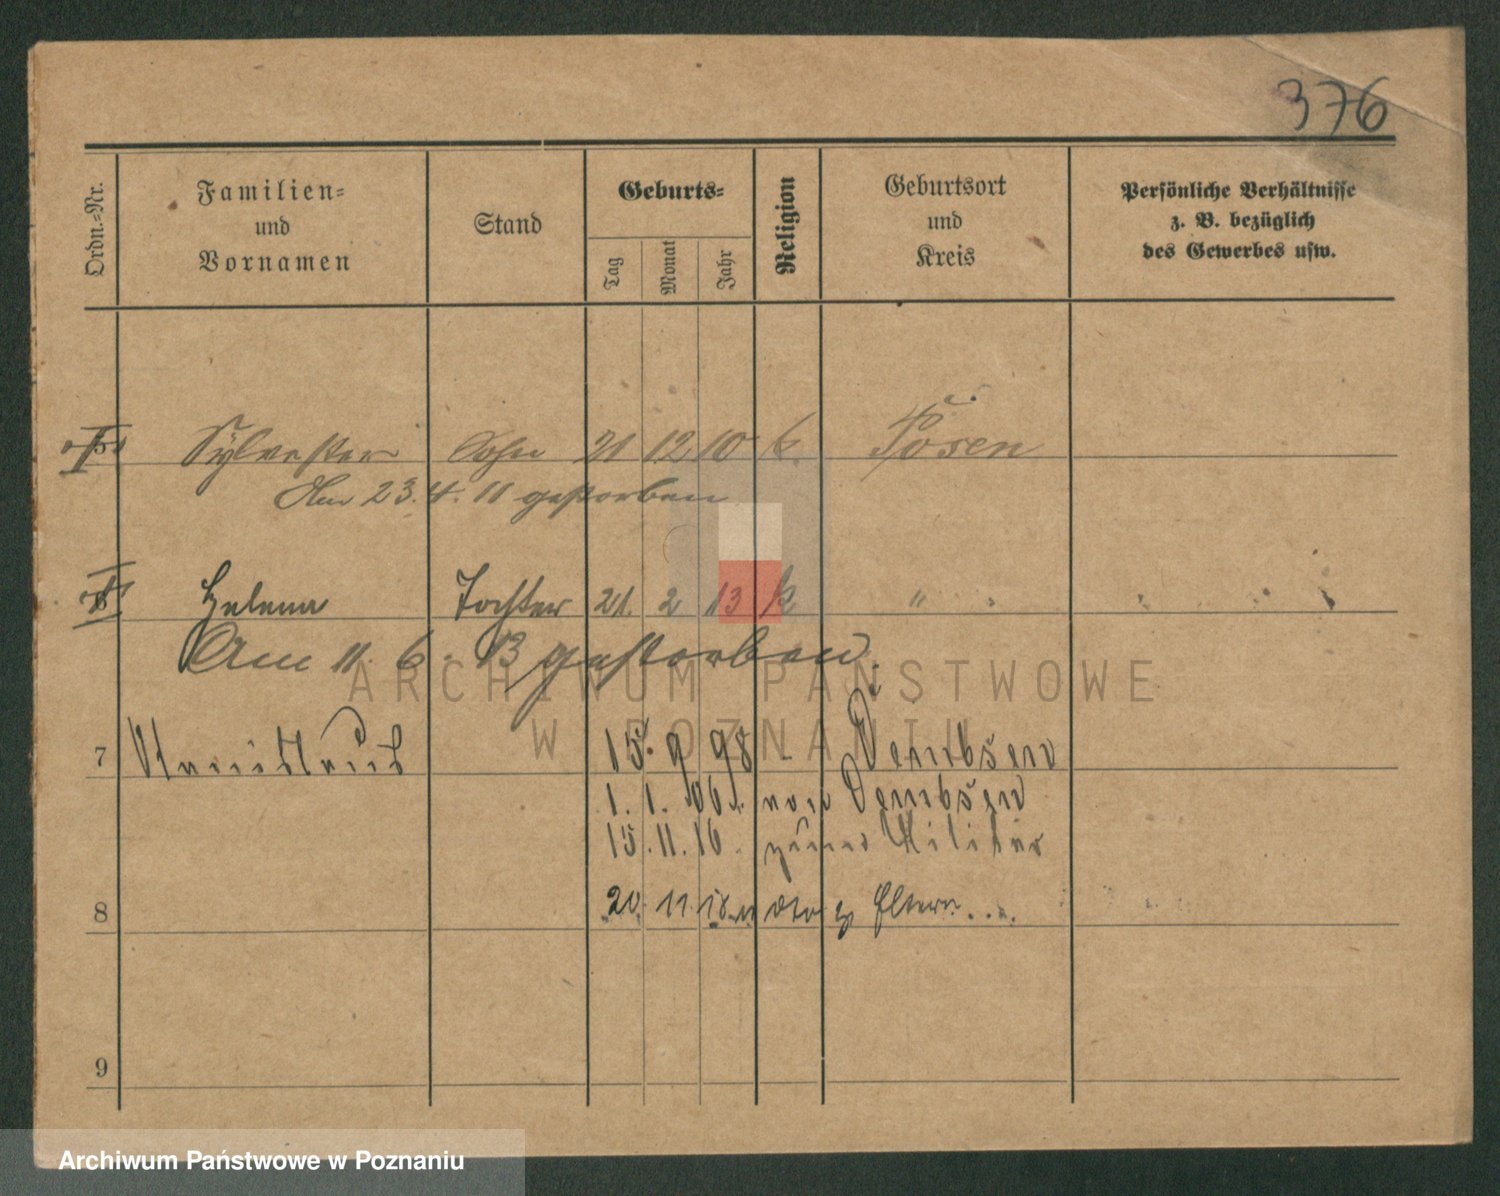 376
Ordn.-Nr.
Familien-
und
Vornamen
Stand
Geburts-
Tag
Monat
Jahr
Religion
Geburtsort
und
Kreis
Persönliche Verhältnisse
z. B. bezüglich
des Gewerbes usw.
5 Sylvester Sohn 21 12 10 k. Posen
Am 23. 4. 11 gestorben
6 Helena Tochter 21. 2 13 k "
Am 11. 6. 13 gestorben.
7 Stanislaus 15. 9 98 - Dembsen
1. 1. 06. von Dembsen
15. 11. 16. zum Militär
8 20 11 18 Eltern
9
ARCHIWUM PAŃSTWOWE
W POZNANIU
Archiwum Państwowe w Poznaniu